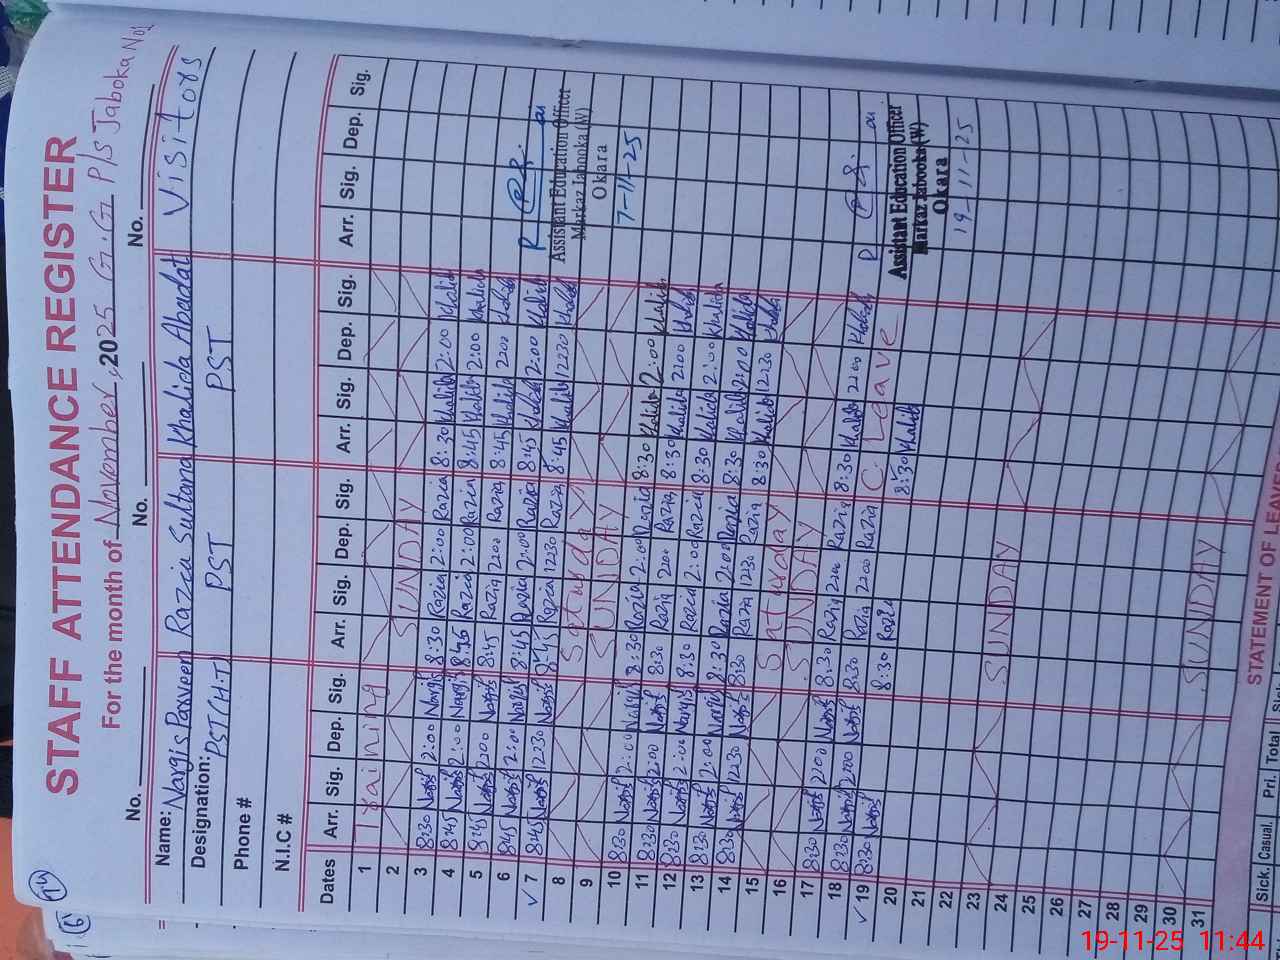 STAFF ATTENDANCE REGISTER
For the month of November, 2025 G.G P/S Jaboka No1
No. No. No.
Name: Nargis Parveen Razia Sultana Khalida Abadat Visitors
Designation: PST(H.T) PST PST
Phone #
N.I.C #
Dates Arr. Sig. Dep. Sig. Arr. Sig. Dep. Sig. Arr. Sig. Dep. Sig. Arr. Sig. Dep. Sig.
1 Training
2 SUNDAY
3 8:30 Nargis 2:00 Nargis 8:30 Razia 2:00 Razia 8:30 Khalida 2:00 Khalida
4 8:45 Nargis 2:00 Nargis 8:45 Razia 2:00 Razia 8:45 Khalida 2:00 Khalida
5 8:45 Nargis 2:00 Nargis 8:45 Razia 2:00 Razia 8:45 Khalida 2:00 Khalida
6 8:45 Nargis 2:00 Nargis 8:45 Razia 2:00 Razia 8:45 Khalida 2:00 Khalida
7 8:45 Nargis 12:30 Nargis 8:45 Razia 12:30 Razia 8:45 Khalida 12:30 Khalida
Assistant Education Officer
Markaz Jabooka (W)
Okara
7-11-25
8 Saturday
9 SUNDAY
10 8:30 Nargis 2:00 Nargis 8:30 Razia 2:00 Razia 8:30 Khalida 2:00 Khalida
11 8:30 Nargis 2:00 Nargis 8:30 Razia 2:00 Razia 8:30 Khalida 2:00 Khalida
12 8:30 Nargis 2:00 Nargis 8:30 Razia 2:00 Razia 8:30 Khalida 2:00 Khalida
13 8:30 Nargis 2:00 Nargis 8:30 Razia 2:00 Razia 8:30 Khalida 2:00 Khalida
14 8:30 Nargis 12:30 Nargis 8:30 Razia 12:30 Razia 8:30 Khalida 12:30 Khalida
15 Saturday
16 SUNDAY
17 8:30 Nargis 2:00 Nargis 8:30 Razia 2:00 Razia 8:30 Khalida 2:00 Khalida
18 8:30 Nargis 2:00 Nargis 8:30 Razia 2:00 Razia C. Leave
19 8:30 Nargis 8:30 Razia 8:30 Khalida
Assistant Education Officer
Markaz Jabooka (W)
Okara
19-11-25
20
21
22
23 SUNDAY
24
25
26
27
28
29
30 SUNDAY
31
STATEMENT OF LEAVE
Sick. Casual. Pri. Total
19-11-25 11:44